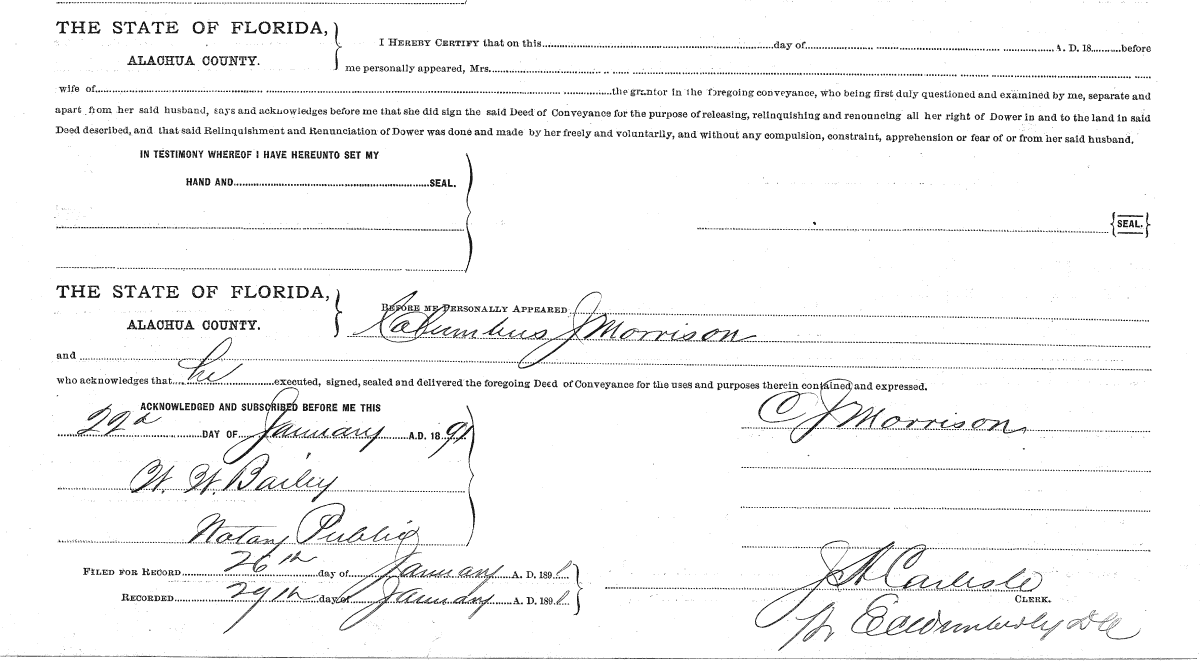 THE STATE OF FLORIDA,
ALACHUA COUNTY.
I HEREBY CERTIFY that on this day of A. D. 18 before
me personally appeared, Mrs.
wife of the grantor in the foregoing conveyance, who being first duly questioned and examined by me, separate and
apart from her said husband, says and acknowledges before me that she did sign the said Deed of Conveyance for the purpose of releasing, relinquishing and renouncing all her right of Dower in and to the land in said
Deed described, and that said Relinquishment and Renunciation of Dower was done and made by her freely and voluntarily, and without any compulsion, constraint, apprehension or fear of or from her said husband.
IN TESTIMONY WHEREOF I HAVE HEREUNTO SET MY
HAND AND SEAL.
SEAL.
THE STATE OF FLORIDA,
ALACHUA COUNTY.
BEFORE ME PERSONALLY APPEARED
Columbus J Morrison
and
who acknowledges that he executed, signed, sealed and delivered the foregoing Deed of Conveyance for the uses and purposes therein contained and expressed.
ACKNOWLEDGED AND SUBSCRIBED BEFORE ME THIS
22d DAY OF January A.D. 18 91
C J Morrison
W. W. Bailey
Notary Public
FILED FOR RECORD 26th day of January A. D. 1891
RECORDED 29th day of January A. D. 1891
J A Carlisle
CLERK.
E C Wimberly DC